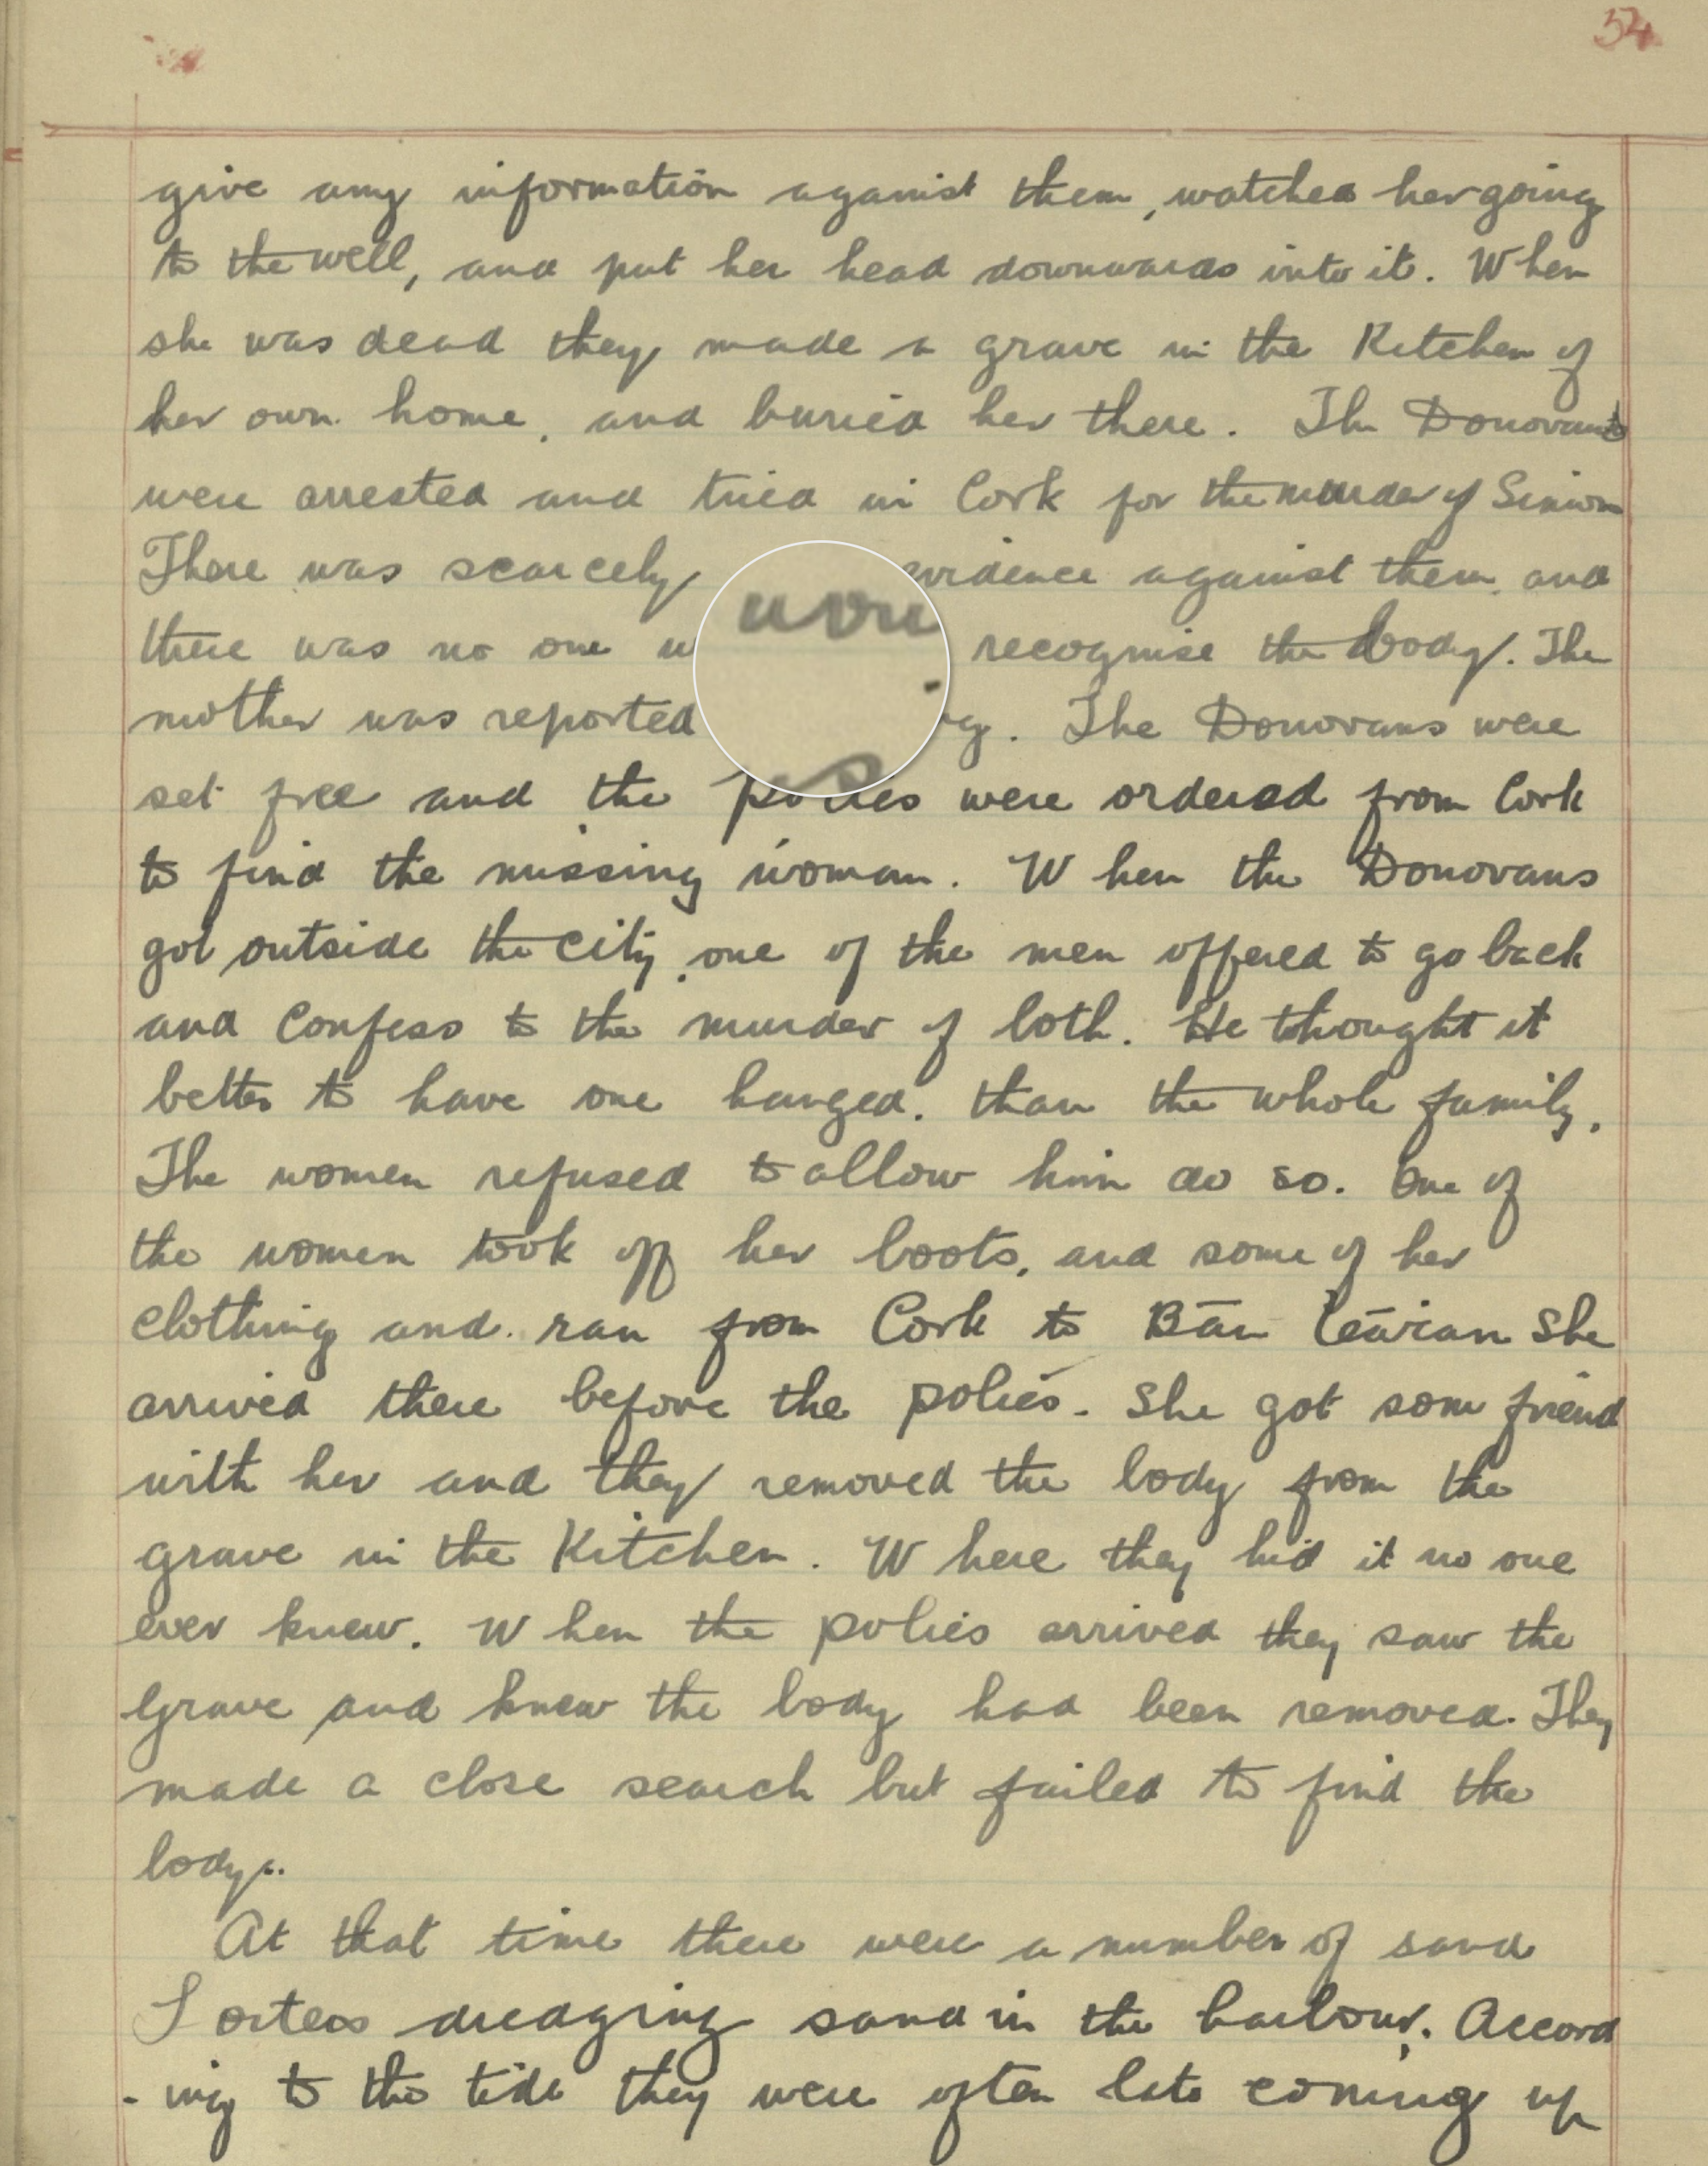 54
give any information against them, watched her going
to the well, and put her head downwards into it. When
she was dead they made a grave in the Kitchen of
her own home, and buried her there. The Donovans
were arrested and tried in Cork for the murder of
There was scarcely evidence against them, and
there was no one recognise the body. The
mother was reported The Donovans were
set free and the polies were ordered from Cork
to find the missing woman. When the Donovans
got outside the city, one of the men offered to go back
and confess to the murder of both. He thought it
better to have one hanged. than the whole family.
The women refused to allow him do so. One of
the women took off her boots, and some of her
clothing and ran from Cork to Bān She
arrived there before the polies. She got some friend
with her and they removed the body from the
grave in the Kitchen. Where they hid it no one
ever knew. When the polies arrived they saw the
grave and knew the body had been removed. They
made a close search but failed to find the
body.
At that time there were a number of sand
dredging sand in the harbour. Accord
-ing to the tide they were often late coming up